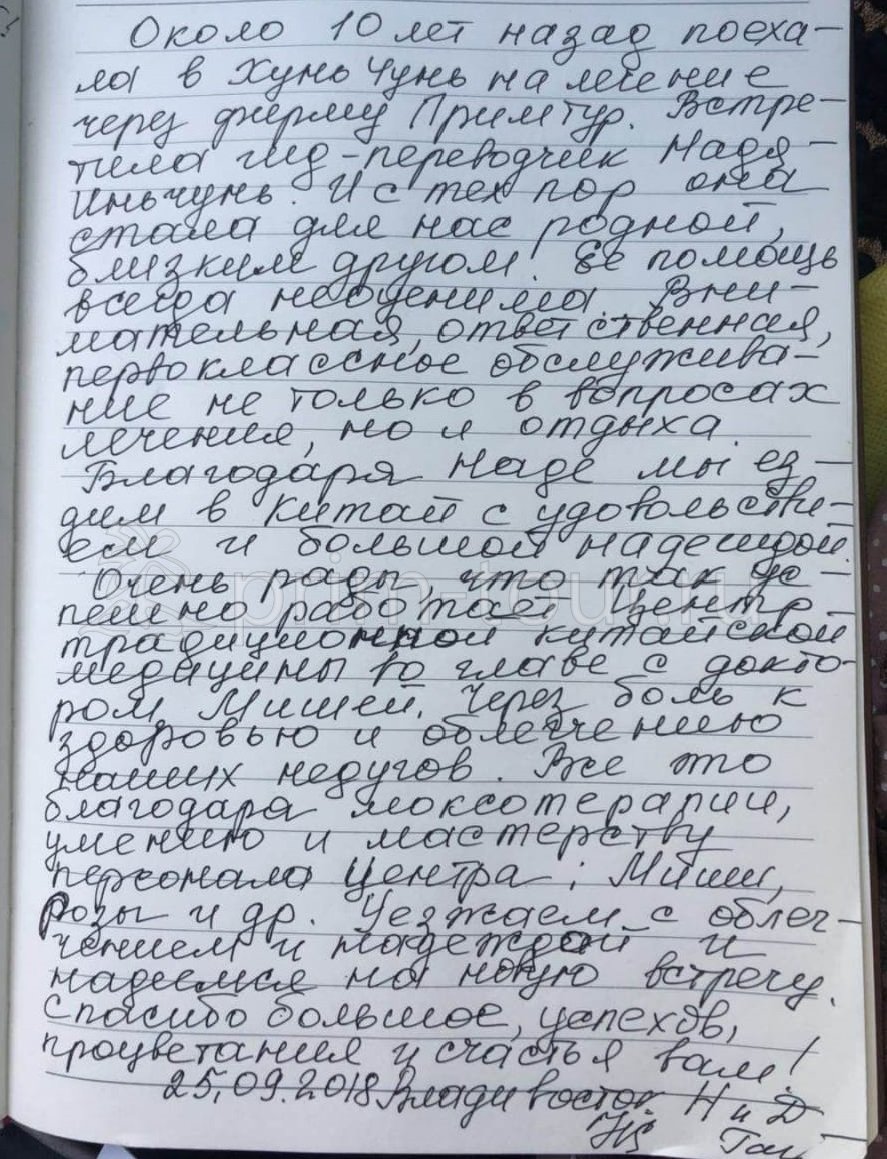 Около 10 лет назад поеха-
ла в Хунь Чунь на лечение
через фирму ПримТур. Встре-
тила гид-переводчик Надя-
Иньчунь. И с тех пор она
стала для нас родной,
близким другом! Её помощь
всегда неоценима. Вни-
мательная, ответственная,
первоклассное обслужива-
ние не только в вопросах
лечения, но и отдыха.
Благодаря Наде мы ез-
дим в Китай с удовольстви-
ем и большой надеждой.
Очень рады, что так ус-
пешно работает Центр
традиционной китайской
медицины во главе с докто-
ром Мишей. Через боль к
здоровью и облегчению
наших недугов. Все это
благодаря моксотерапии,
умению и мастерству
персонала Центра: Миши,
Розы и др. Уезжаем с облег-
чением и надеждой и
надеемся на новую встречу.
Спасибо большое, успехов,
процветания и счастья вам!
25.09.2018 Владивосток Н и Д
prim-tour.ru